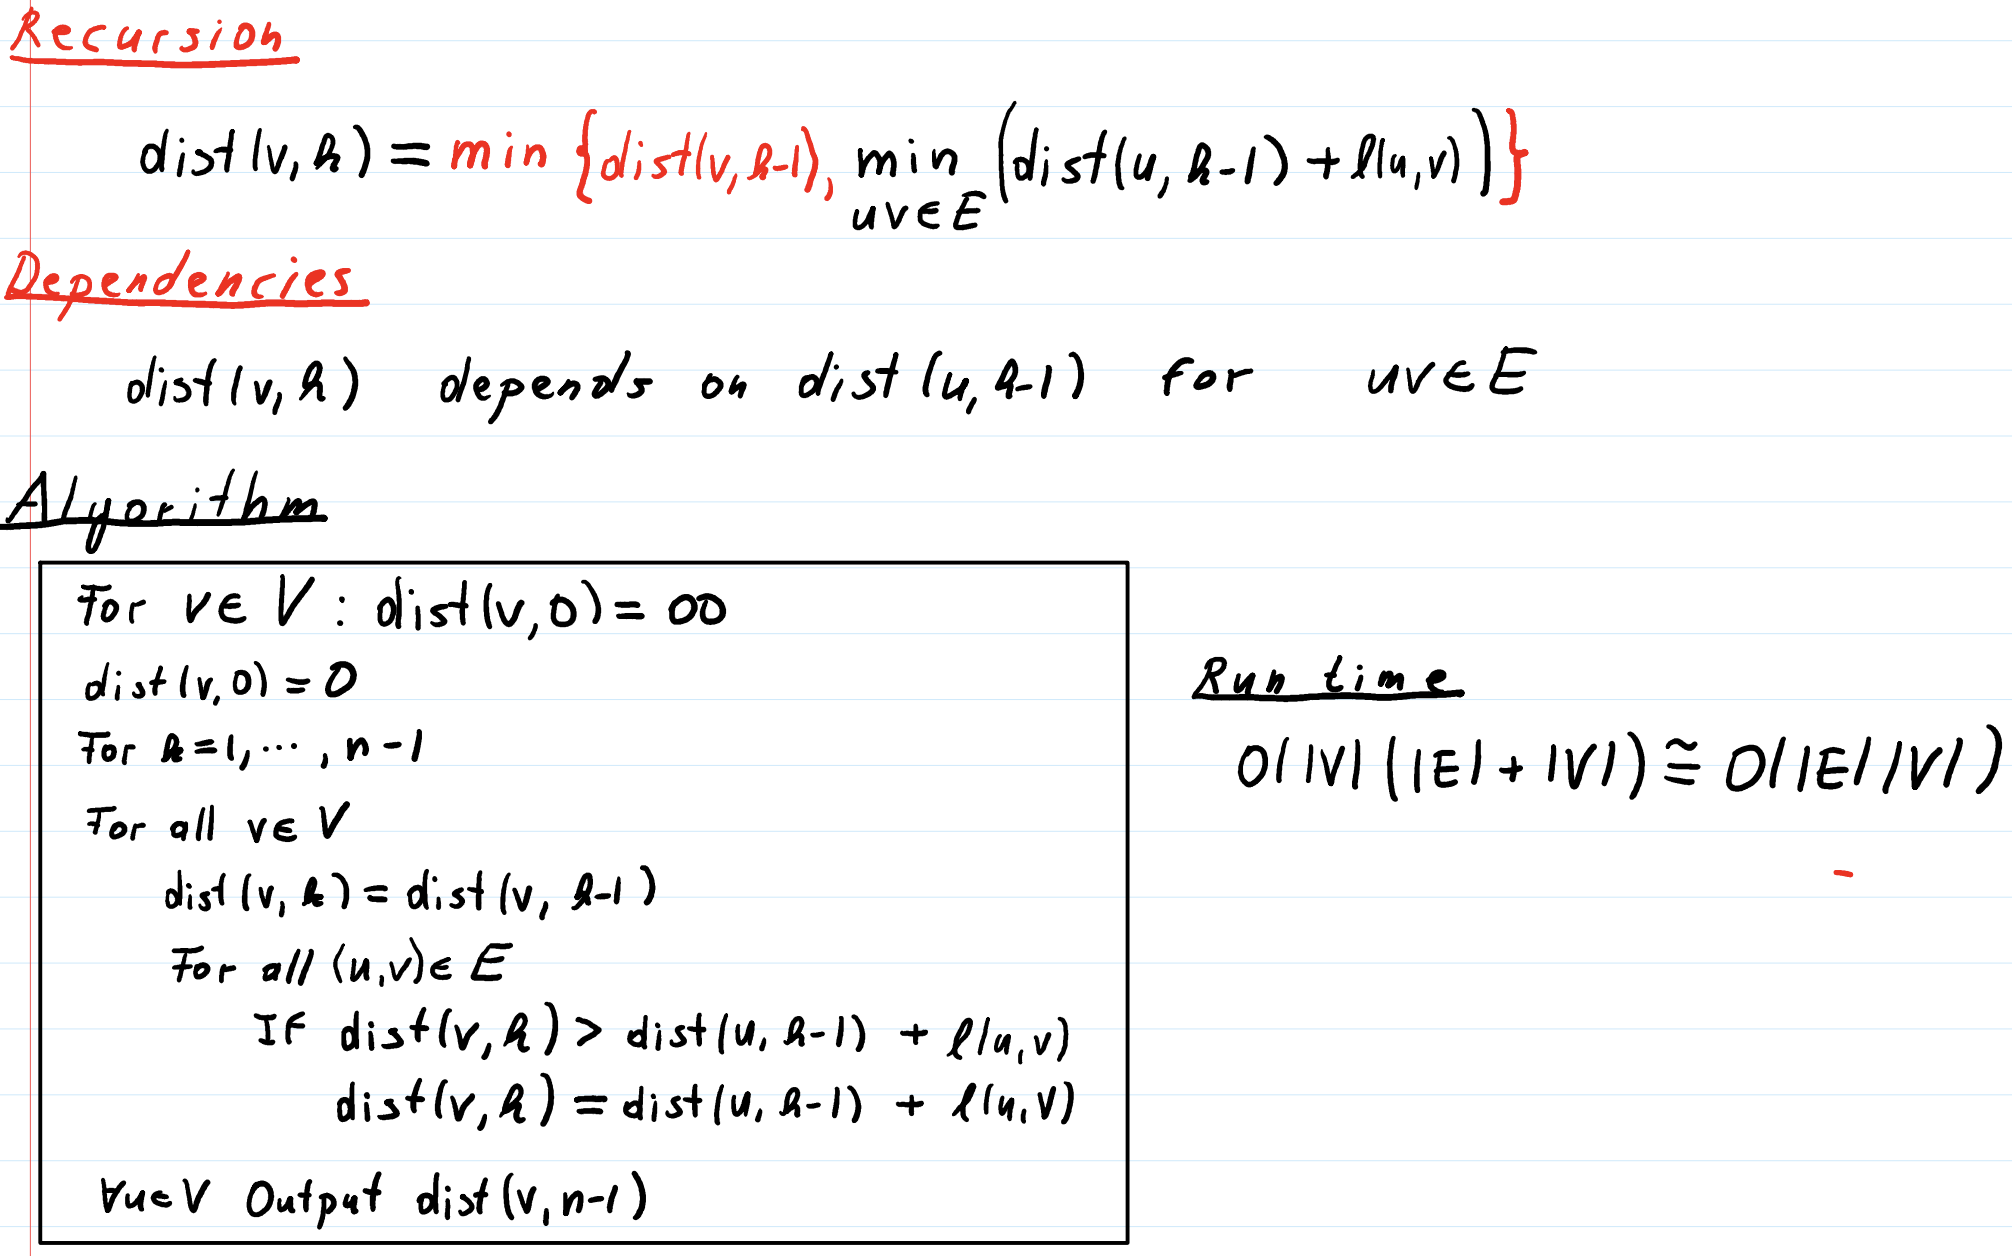 Recursion
dist(v, k) = min {dist(v, k-1), min (dist(u, k-1) + l(u,v))}
uv∈E
Dependencies
dist(v, k) depends on dist(u, k-1) for uv∈E
Algorithm
For v∈V : dist(v,0) = ∞
dist(v,0) = 0
For k=1, ⋯ , n-1
For all v∈V
dist(v, k) = dist(v, k-1)
For all (u,v)∈E
IF dist(v, k) > dist(u, k-1) + l(u,v)
dist(v, k) = dist(u, k-1) + l(u,v)
∀u∈V Output dist(v, n-1)
Run time
O(|V| (|E| + |V|) ≅ O(|E| |V|)